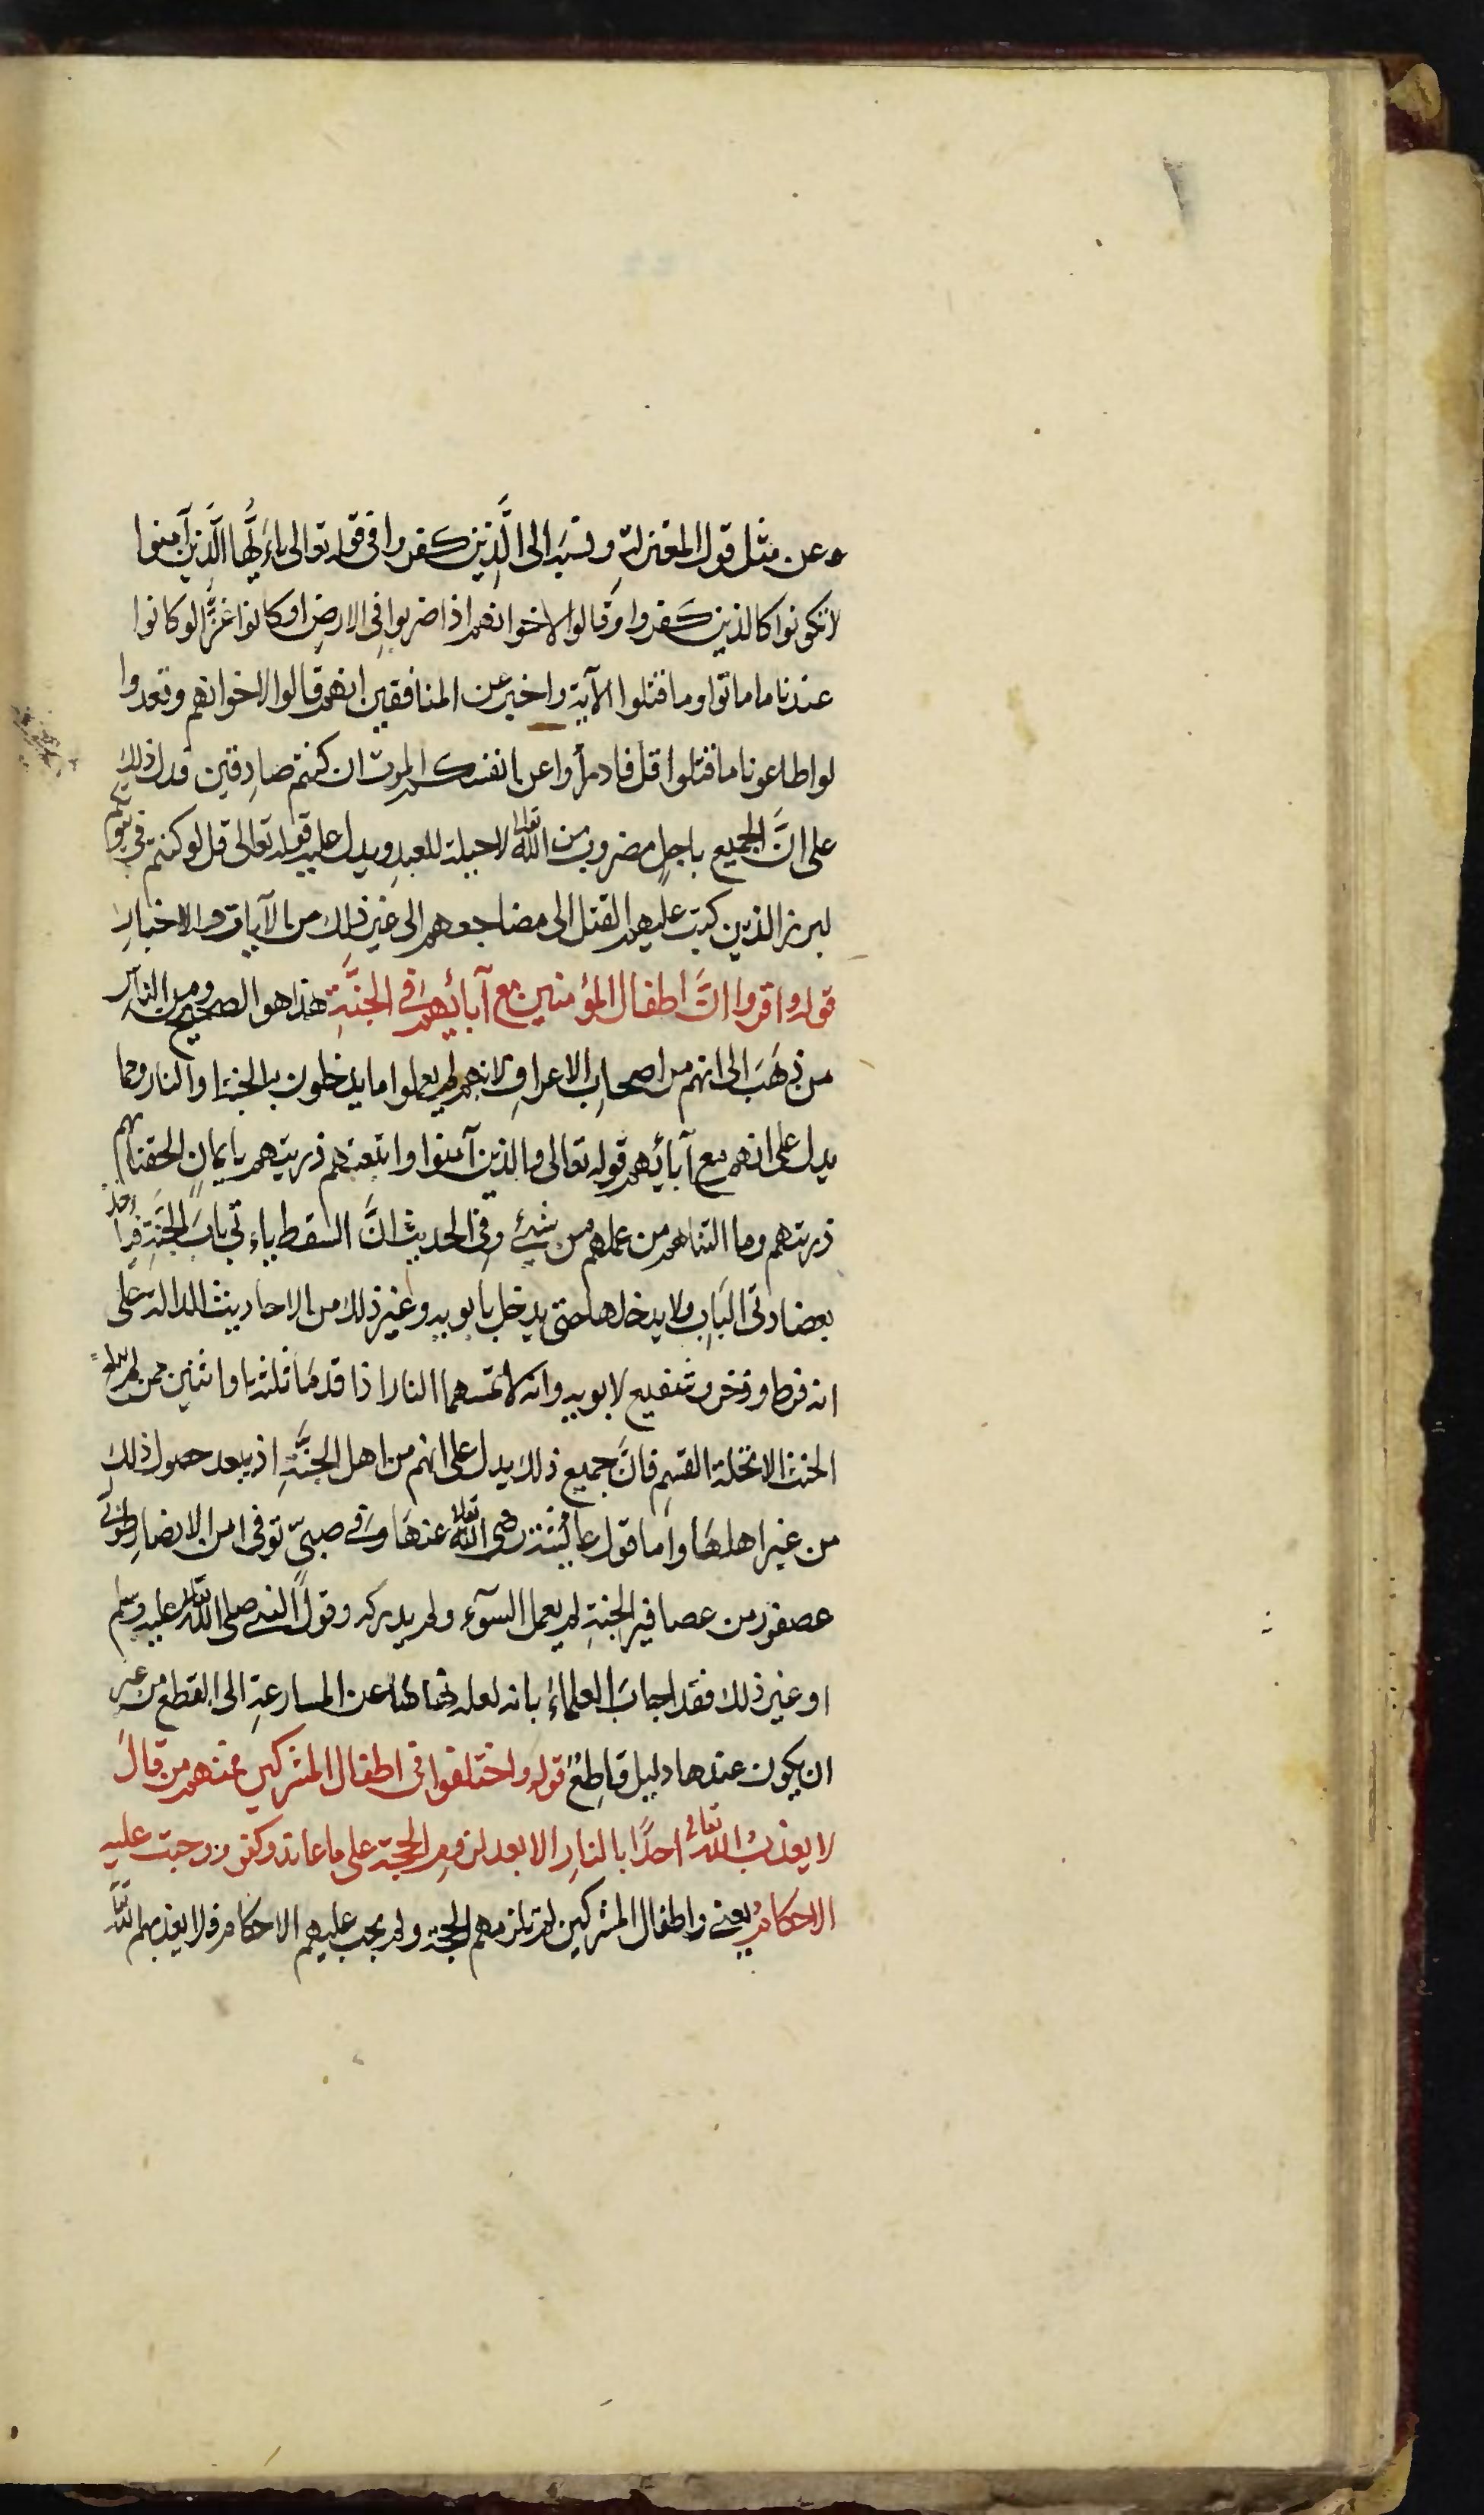 وعن مثل قول المعتزلة ونسبه الى الَّذِين كفروا فى قوله تعالى ياءَيُّها الَّذين آمنوا
لا تكونوا كالذين كفروا وقالوا لاخوانهم اذا ضربوا فِى الارضِ او كانوا غزًّا لو كانوا
عندنا ما ماتوا وما قتلوا الآية واخبر عن المنافقين انهم قالوا لاخوانهم وقعدوا
لو اطاعونا ما قتلوا قل فادرأوا عن انفسكم الموت ان كنتم صادِقين فدل ذلك
على انَّ الجميع باجلٍ مضروب من الله تعالى لا حيلة للعبدِ ويدل عليه قوله تعالى قل لو كنتم فى بيوتكم
لبرز الذين كتب عليهم القتل الى مضاجعهم الى غير ذلك من الآيات والاخبارِ
قوله واقروا انَّ اطفال المؤمنين مع آبائهم فى الجنَّةِ هذا هو الصحيح ومن الناس
من ذهَبَ الى انهم من اصحابِ الاعرافِ لانهم لم يعملوا ما يدخلون به الجنة او النار ومما
يدل على انهم مع آبائهم قوله تعالى والذين آمنوا واتبعتهم ذريتهم بايمانٍ الحقنا بهم
ذريتهم وما التناهم من عملهم من شىءٍ وفى الحديث انَّ السقط ياءتى بابَ الجنَّةِ فيأخذ
بعضادتى البابِ ولا يدخلها حتى يدخل بابويه وغير ذلك من الاحاديث الدالة على
انه فرط وذخر وشفيع لابويه وانه لا تمسهما النار اذا قدمَا ثلثة او اثنين ممن لم يبلغ
الحنث الا تحلة القسمِ فانَّ جميع ذلك يدل على انهم من اهل الجنَّةِ اذ يبعد حصول ذلك
من غير اهلهَا واما قول عائشة رضى الله تعالى عنهَا فى صبىّ توفى من الانصارِ طوبى
عصفور من عصافير الجنةِ لم يعمل السوٓء ولم يدركه وقول النبى صلى الله تعالى عليه وسلم
او غير ذلك فقد اجاب العلماءُ بانه لعله نهاها عن المسارعةِ الى القطع من غير
ان يكون عندها دليل قاطِعٌ قوله واختلفوا فى اطفال المشركين فمنهم من قالَ
لا يعذبُ الله تعالى احدًا بالنارِ الا بعد لزومِ الحجة على ما عاند وكفر ووجبت عليه
الاحكامُ يعنى واطفال المشركين لم تلزمهم الحجة ولم يجب عليهم الاحكام فلا يعذبهم الله